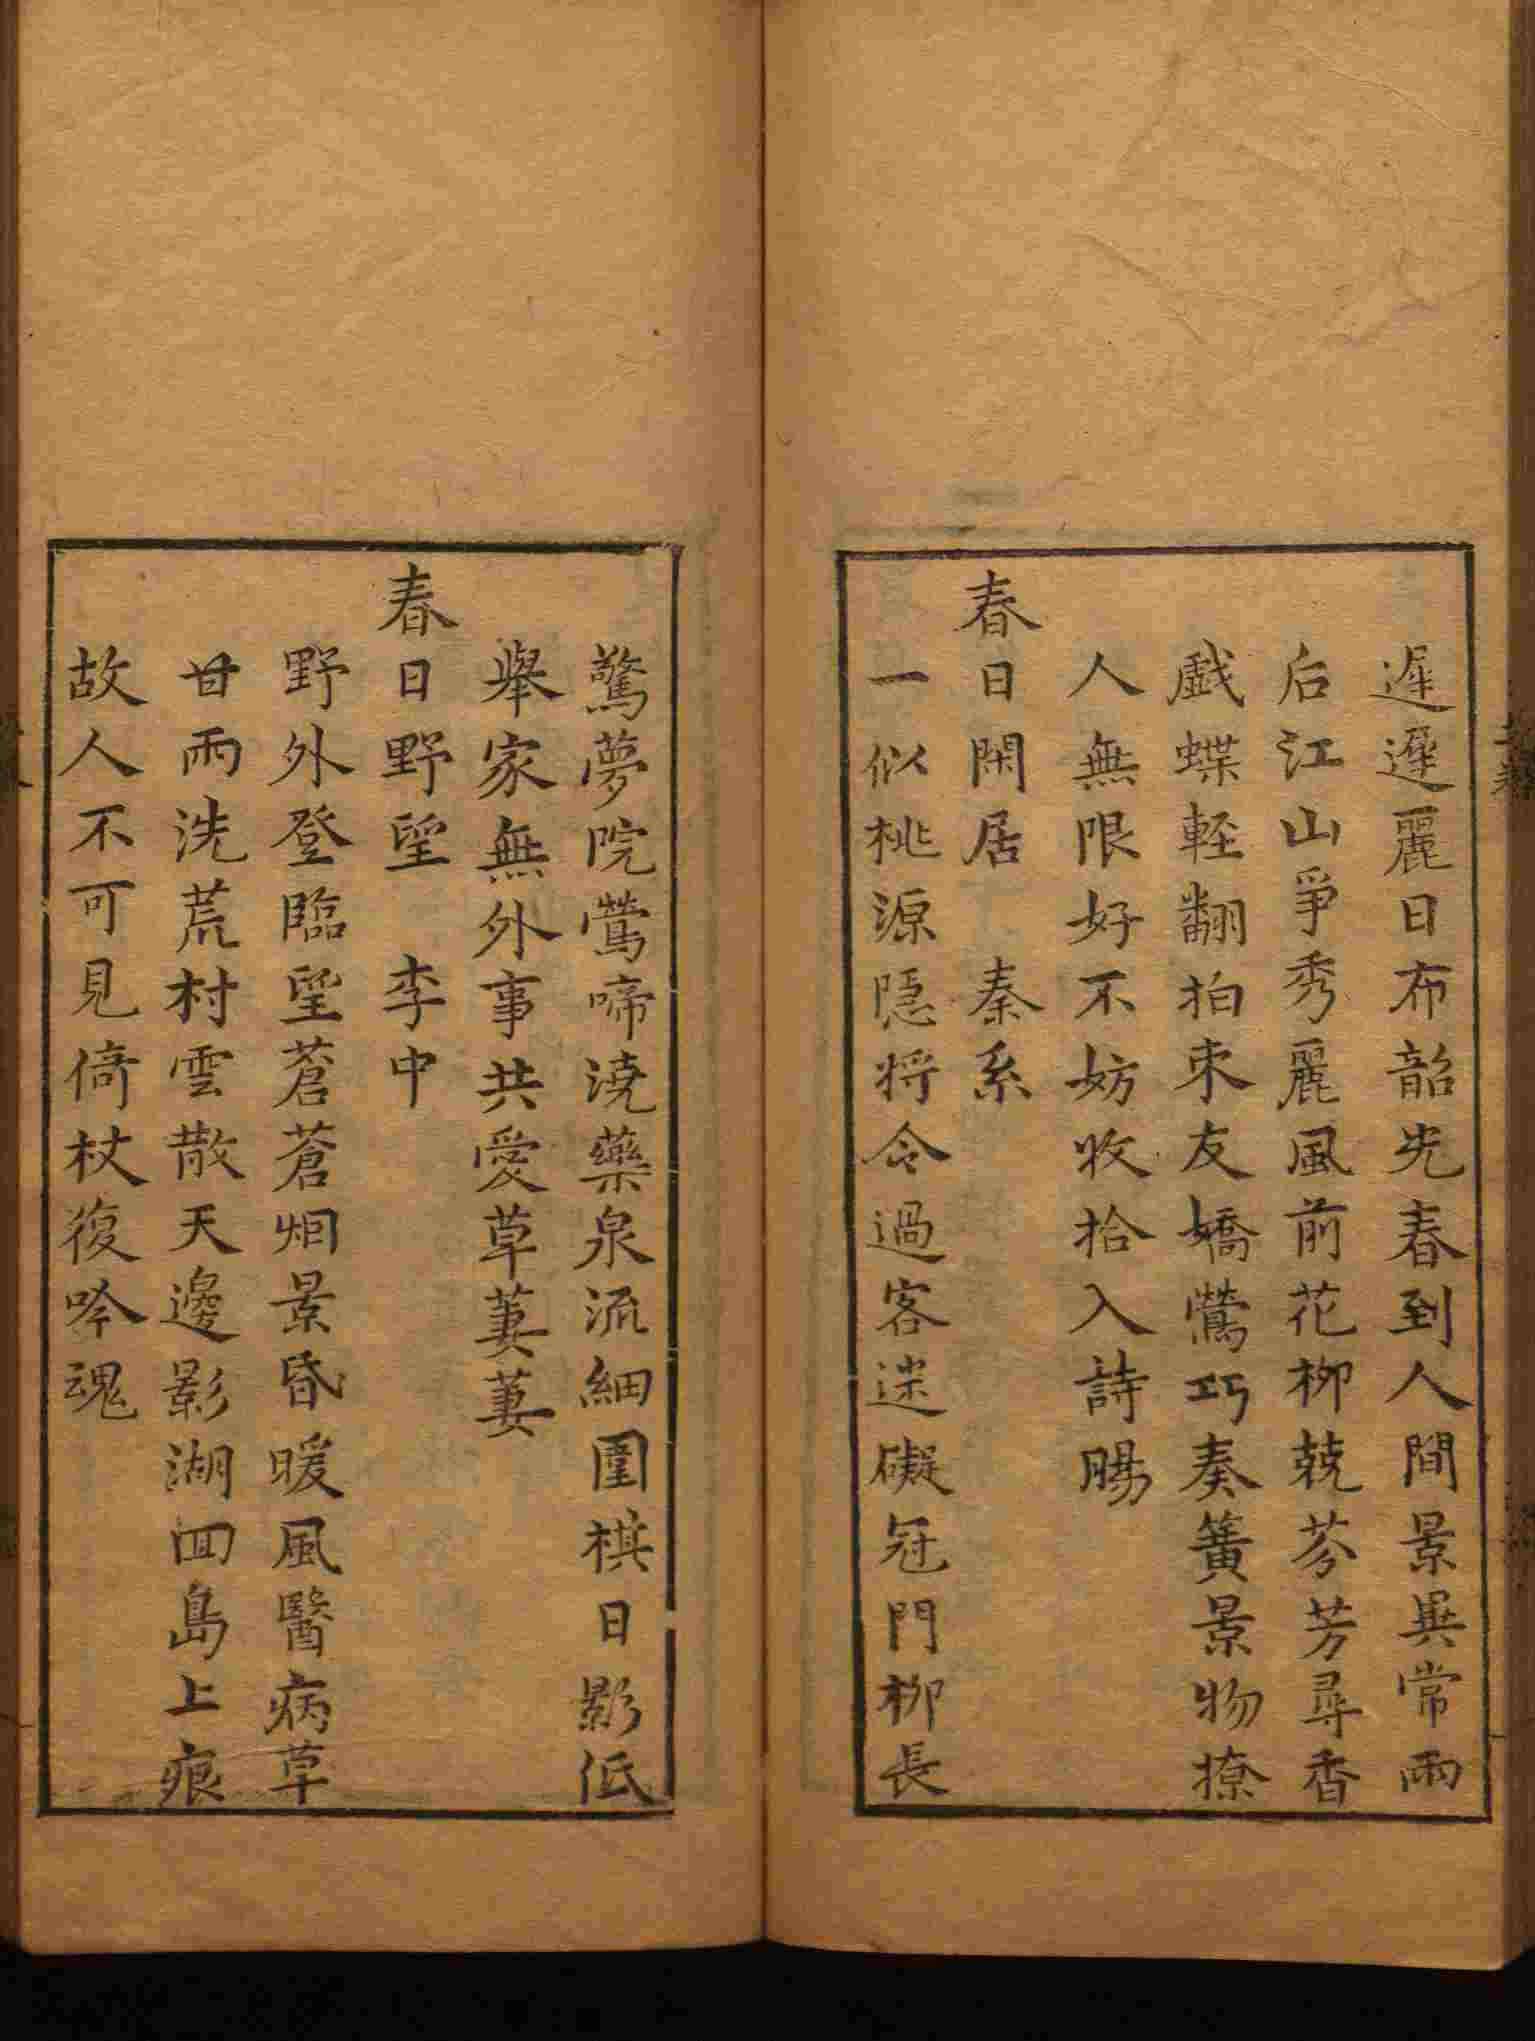 遲遲麗日布韶光春到人間景異常雨
后江山爭秀麗風前花柳兢芬芳尋香
戲蝶輕翻拍朿友嬌鶯巧奏簧景物撩
人無限好不妨收拾入詩腸
春日閑居 秦系
一似桃源隱将令過客迷礙冠門柳長
驚夢院鶯啼澆藥泉流細圍棋日影低
舉家無外事共愛草萋萋
春日野望 李中
野外登臨望蒼蒼烟景昏暖風醫病草
甘雨洗荒村雲散天邊影湖回島上痕
故人不可見倚杖復吟魂